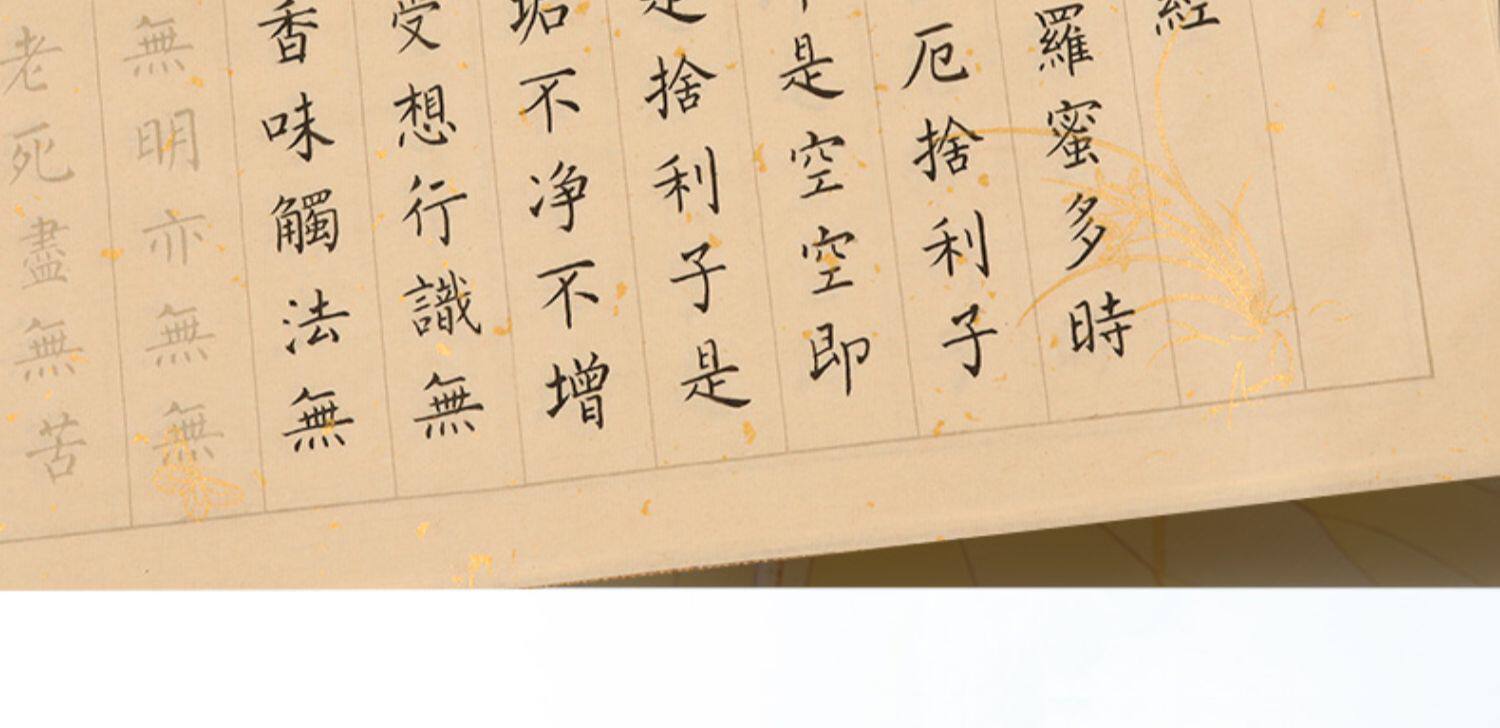 經
羅蜜多時
厄捨利子
是空空即
是捨利子是
垢不净不增
受想行識無
香味觸法無
無明亦無無
老死盡無苦